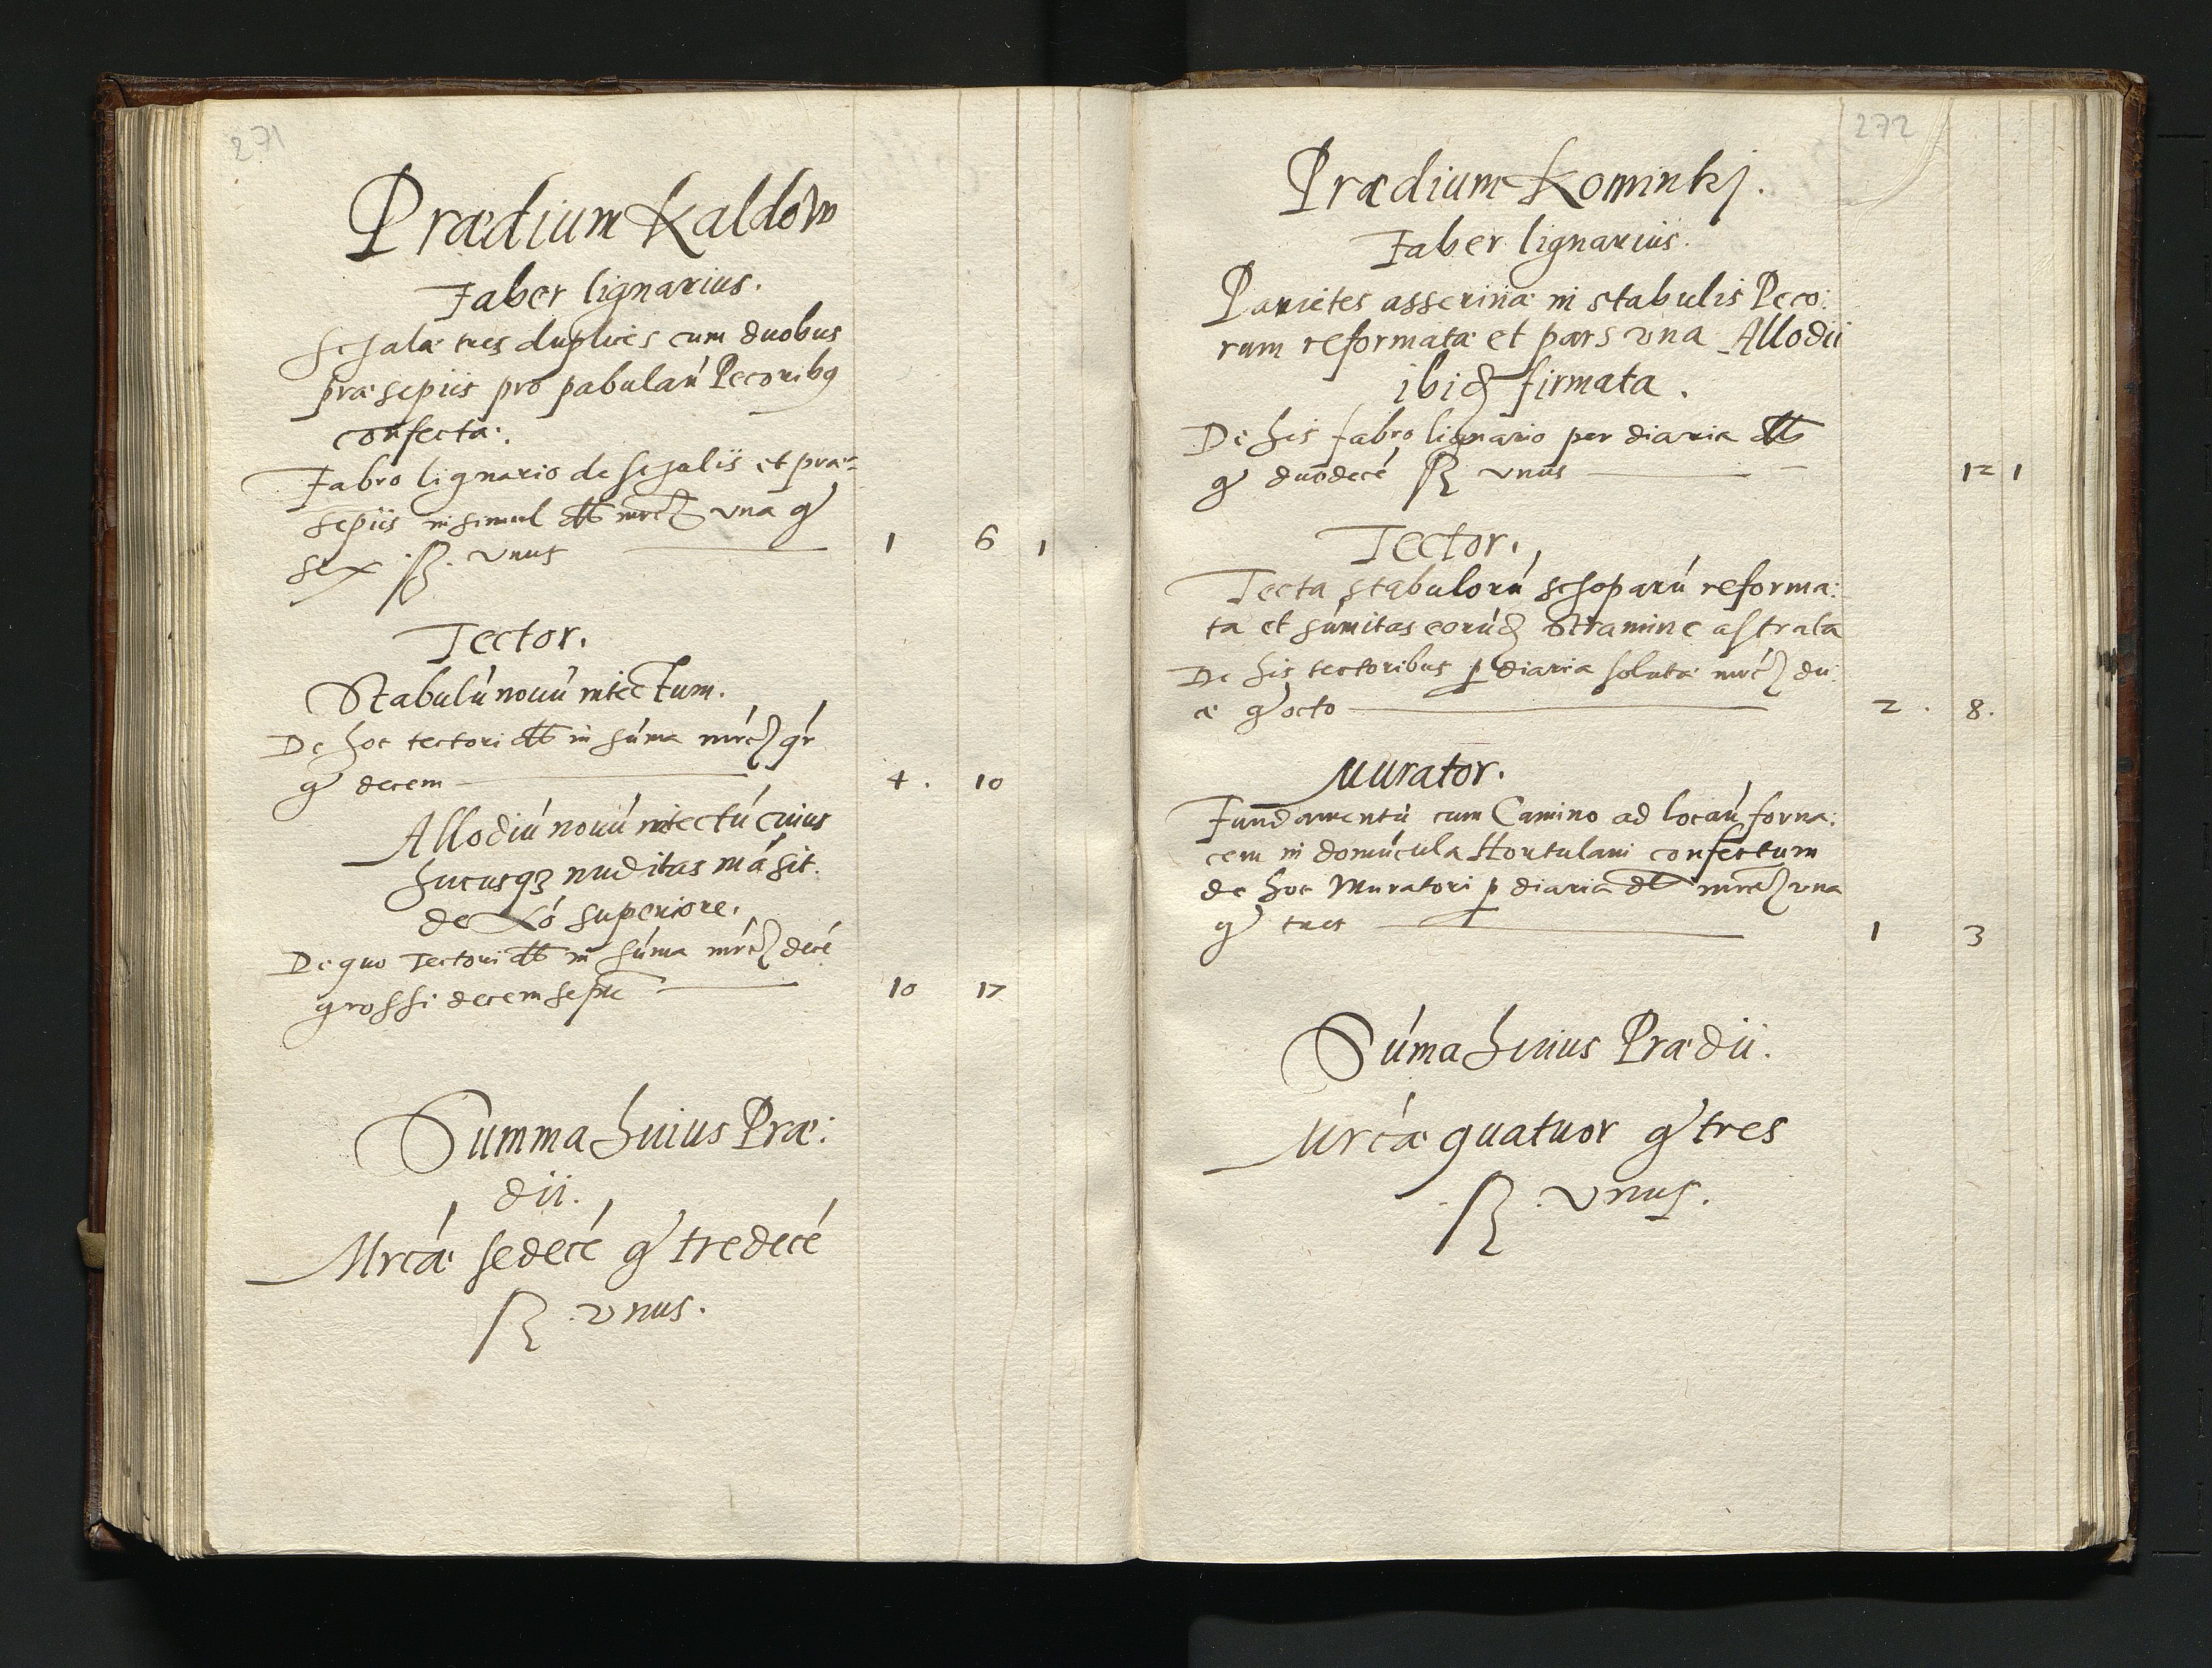 271
Prædium Kaldow
Faber lignarius.
Schalæ tres duplices cum duobus
præsepiis pro pabulań Pecoribꝯ
confectæ.
Fabro lignario de schaliis et præ=
sepiis insimul dtt mrcꝫ vna gͬ
sex ß. vnus 1 6 1
Tector.
Stabulú nouú intectum.
De hoc tectori dtt in súma mŕcꝫ qŕ
gͬ decem 4. 10
Allodiú nouú intectú cuius
hucusqꝫ nuditas máſit.
de superiore.
De quo Tectori dtt in súma mŕcꝫ decé
grossi decem septé 10 17
Summa huius Præ:
dii.
Mrcæ sedecé gͬ tredecé
ß. vnus.
272
Prædium Kominkj.
Faber lignariús.
Parietes asserinæ in stabulis Peco:
rum reformatæ et pars vna Allodii
ibidꝫ firmata.
De his fabro lignario per diaria dtt
gͬ duodecé ß vnus 12 1
Tector.
Tecta stabulorú schoparú reforma:
ta et súmitas eorúdꝫ stramine astrata
De his tectoribus ꝑ diaria soluta mrcꝫ du:
æ gͬ octo 2. 8.
Murator.
Fundamentú cum Camino ad locań forna:
cem in domúcula Hortulani confectum
de hoc Muratori ꝑ diaria dtt mrcꝫ vna
gͬ tres 1 3
Súma huius Prædii.
Mrcæ quatuor gͬ tres
ß. vnus.